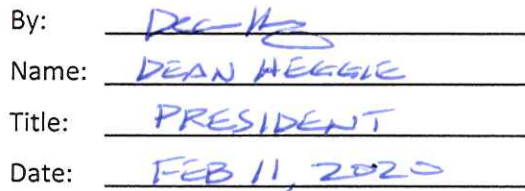 By:
Name: DEAN HEGGIE
Title: PRESIDENT
Date: FEB 11, 2020